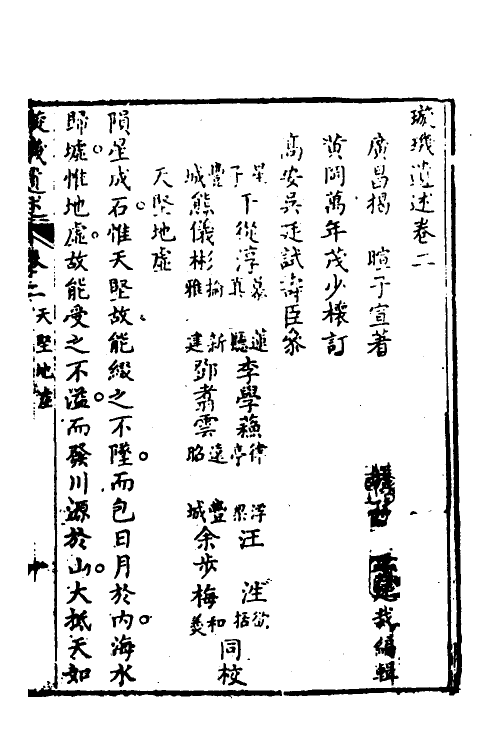 璇璣遺述卷二
廣昌揭 暄子宣著 裁編輯
黃岡萬年茂少懷訂
高安吳廷試 臣叅
星子下從淳慕真 蓮廳李學蘓律亭 浮梁汪 浩
豐城熊儀彬掄雅 新建鄧翥雲遠昭 豐城余步梅和羮 同校
天堅地虛
隕星成石惟天堅故能綴之不墜而包日月於内海水
歸墟惟地虛故能受之不溢而發川源於山大抵天如
璇璣遺述 卷之二 天堅地虛